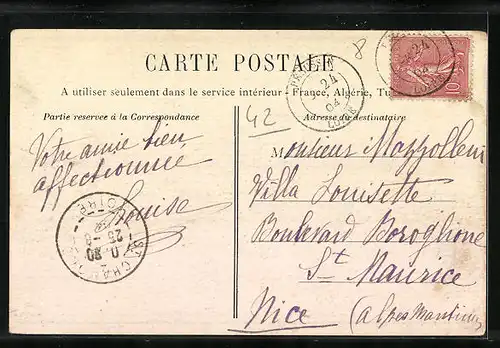 CARTE POSTALE
A utiliser seulement dans le service intérieur - France, Algérie, Tu
Partie reservee à la Correspondance
Adresse du destinataire
8
42
Votre amie bien
affectionnée
Louise
Monsieur Mazzolleni
Villa Louisette
Boulevard Boroglione
St Maurice
Nice (Alpes Maritimes
24
04
LOIRE
24
04
10
St CHAMOND
LOIRE
25